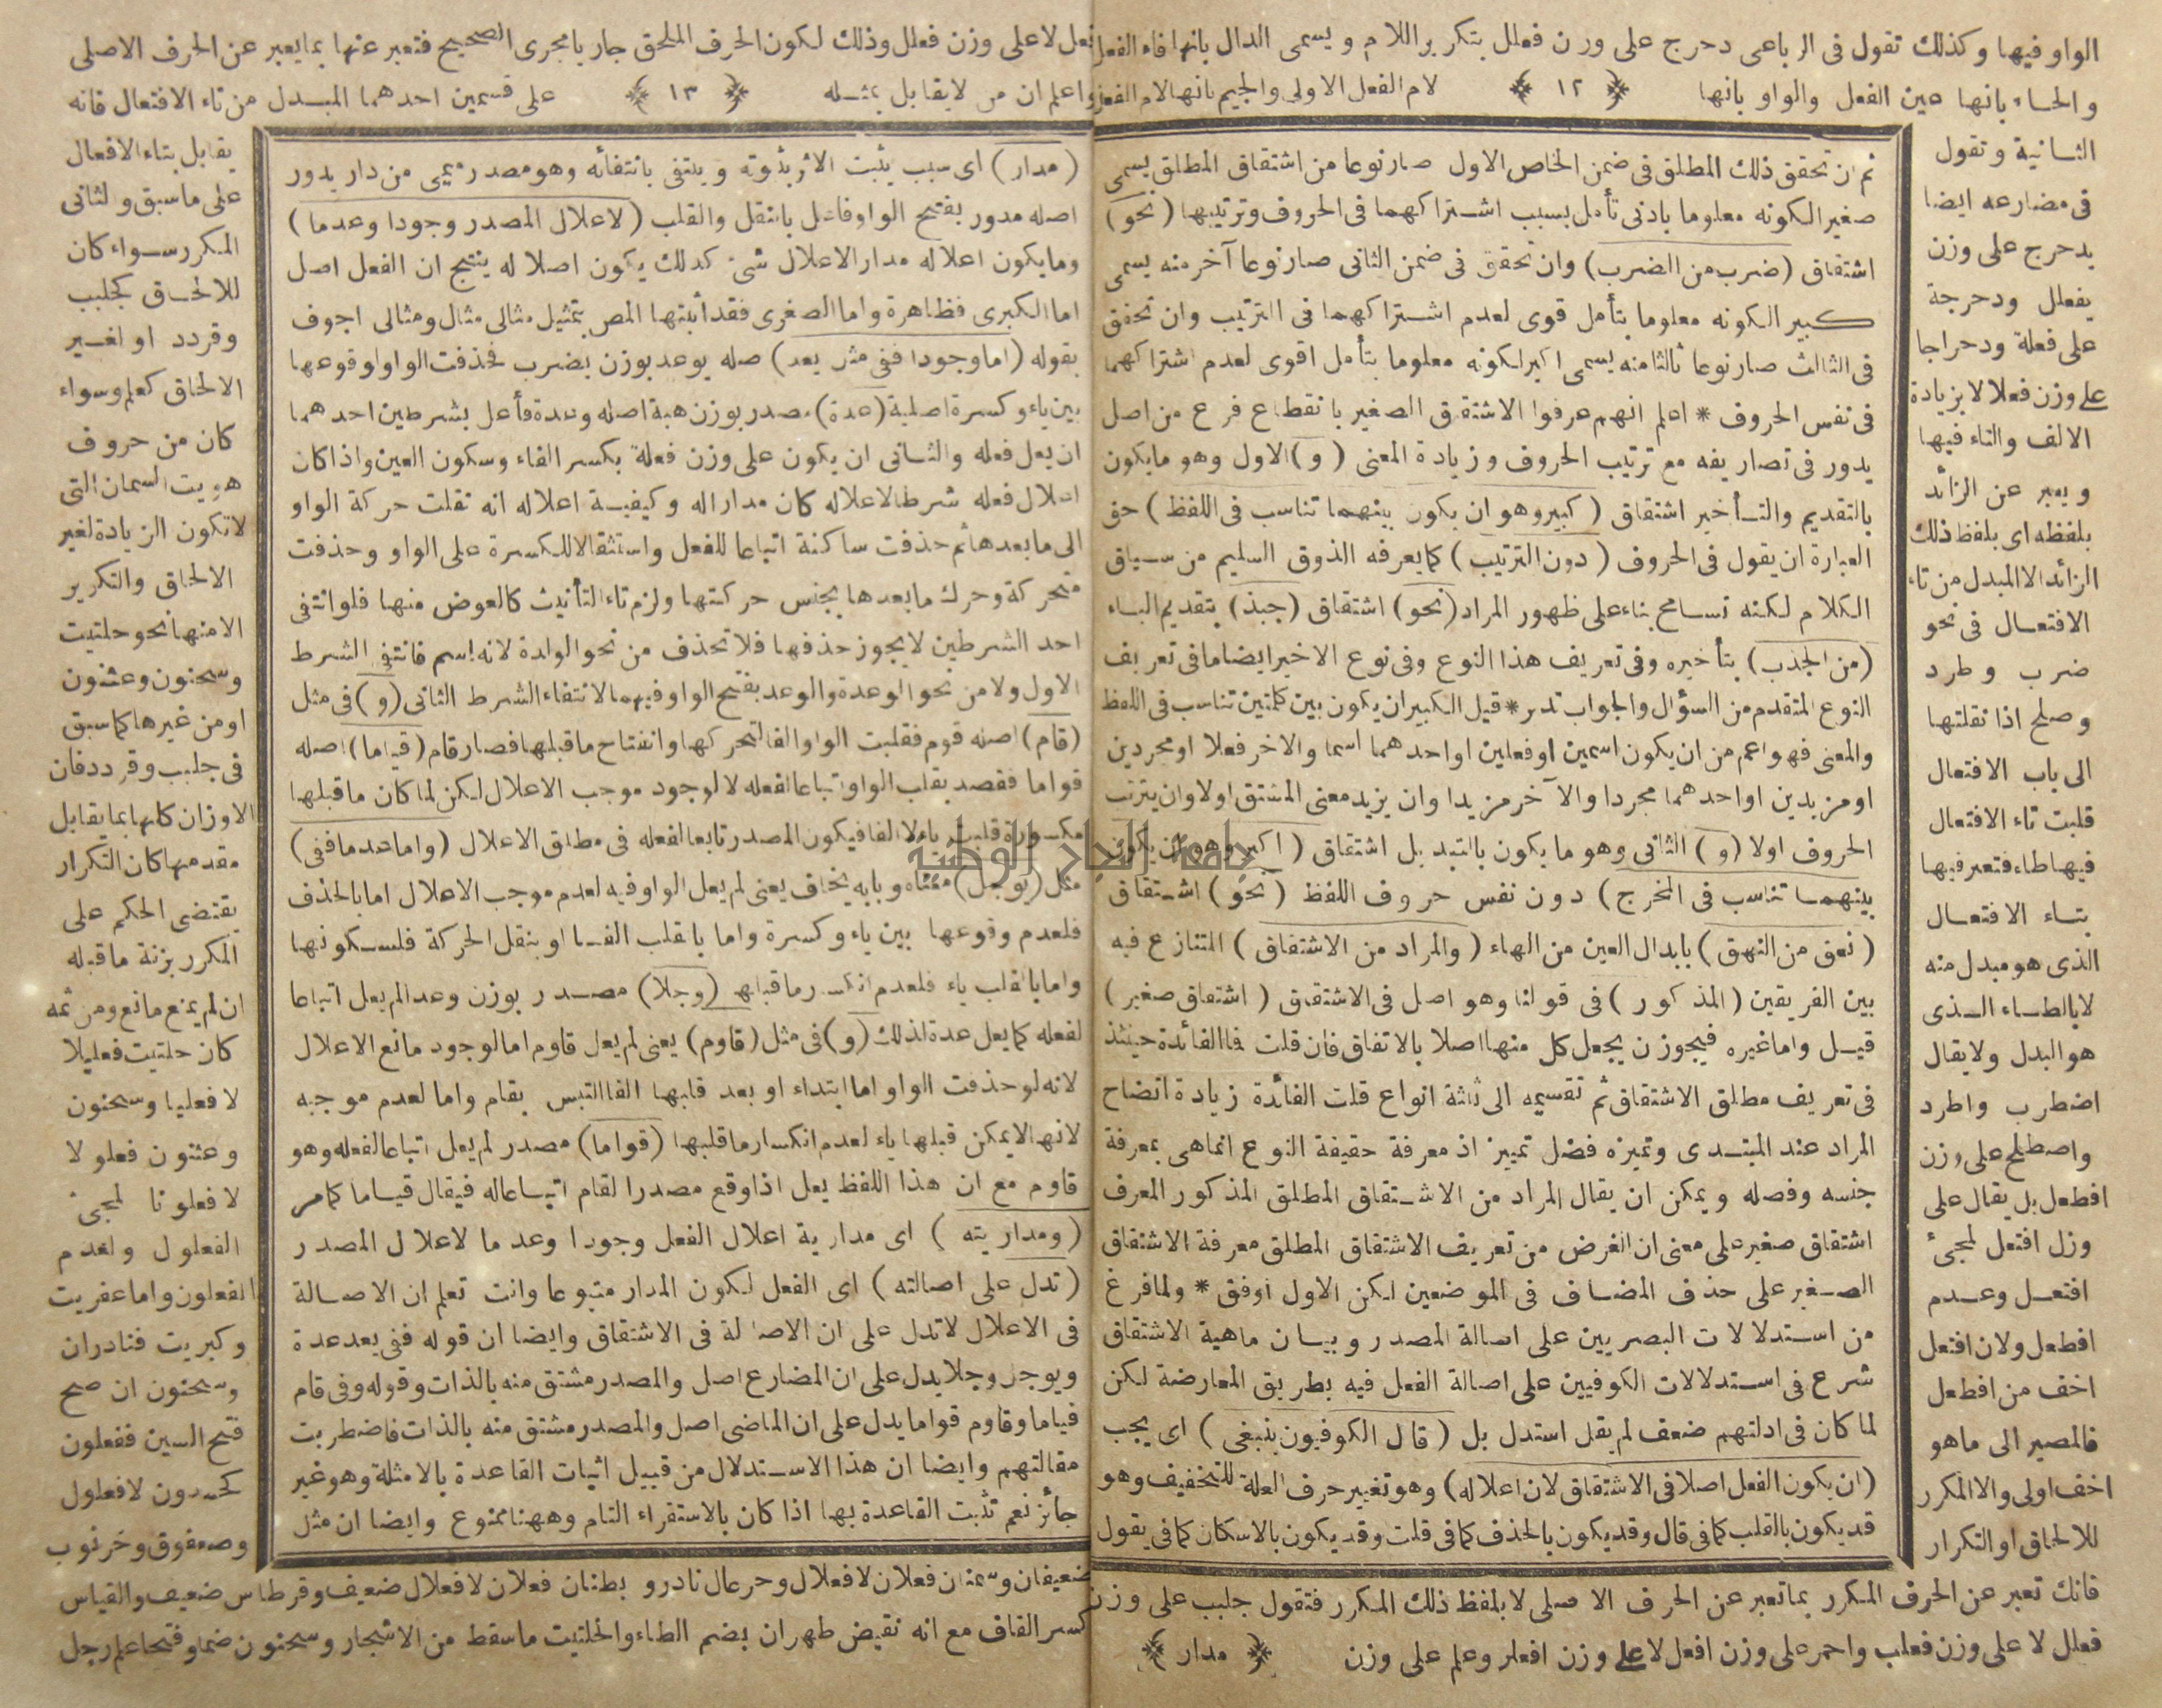 الواو فيها وكذلك تقول فى الرباعى دحرج على وزن فعلل بتكرير اللام ويسمى الدال بانها فاء الفعل
والحاء بانها عين الفعل والواو بانها ﴿ ١٢ ﴾ لام الفعل الاولى والجيم بانها لام الفعل
الثانية وتقول
فى مضارعه ايضا
يدحرج على وزن
يفعلل ودحرجة
على فعلة ودحراجا
على وزن فعلالا بزيادة
الالف والتاء فيها
ويعبر عن الزائد
بلفظه اى بلفظ ذلك
الزائد الا المبدل من تاء
الافتعال فى نحو
ضرب وطرد
وصلح اذا نقلتها
الى باب الافتعال
قلبت تاء الافتعال
فيها طاء فتعبر فيها
بتاء الافتعال
الذى هو مبدل منه
لا بالطاء الذى
هو البدل ولا يقال
اضطرب واطرد
واصطلح على وزن
افطعل بل يقال على
وزل افتعل لمجئ
افتعل وعدم
افطعل ولان افتعل
اخف من افطعل
فالمصير الى ماهو
اخف اولى والا المكرر
للالحاق او التكرار
فانك تعبر عن الحرف المكرر بما تعبر عن الحرف الاصلى لا بلفظ ذلك المكرر فتقول جلبب على وزن
فعلل لا على وزن فعلب واحمر على وزن افعل لا على وزن افعلر وعلم على وزن ﴿ مدار ﴾
ثم ان تحقق ذلك المطلق فى ضمن الخاص الاول صار نوعا من اشتقاق المطلق يسمى
صغيرا لكونه معلوما بادنى تأمل بسبب اشتراكهما فى الحروف وترتيبها (نحو)
اشتقاق (ضرب من الضرب) وان تحقق فى ضمن الثانى صار نوعا آخر منه يسمى
كبيرا لكونه معلوما بتأمل قوى لعدم اشتراكهما فى الترتيب وان تحقق
فى الثالث صار نوعا ثالثا منه يسمى اكبر لكونه معلوما بتأمل اقوى لعدم اشتراكهما
فى نفس الحروف * اعلم انهم عرفوا الاشتقاق الصغير بانقطاع فرع من اصل
يدور فى تصاريفه مع ترتيب الحروف وزيادة المعنى (و) الاول وهو ما يكون
بالتقديم والتأخير اشتقاق (كبير وهو ان يكون بينهما تناسب فى اللفظ) حق
العبارة ان يقول فى الحروف (دون الترتيب) كما يعرفه الذوق السليم من سياق
الكلام لكنه تسامح بناء على ظهور المراد (نحو) اشتقاق (جبذ) بتقديم الباء
(من الجذب) بتأخيره وفى تعريف هذا النوع وفى نوع الاخير ايضا ما فى تعريف
النوع المتقدم من السؤال والجواب تدبر * قيل الكبير ان يكون بين كلمتين تناسب فى اللفظ
والمعنى فهو اعم من ان يكون اسمين او فعلين او احدهما اسما والاخر فعلا او مجردين
او مزيدين او احدهما مجردا والآخر مزيدا وان يزيد معنى المشتق اولا وان يترتب
الحروف اولا (و) الثانى وهو ما يكون بالتبديل اشتقاق (اكبر وهو ان يكون
بينهما تناسب فى المخرج) دون نفس حروف اللفظ (نحو) اشتقاق
(نعق من النهق) بابدال العين من الهاء (والمراد من الاشتقاق) المتنازع فيه
بين الفريقين (المذكور) فى قولنا وهو اصل فى الاشتقاق (اشتقاق صغير)
قيل واما غيره فيجوز ن يجعل كل منها اصلا بالاتفاق فان قلت فما الفائدة حينئذ
فى تعريف مطلق الاشتقاق ثم تقسيمه الى ثلثة انواع قلت الفائدة زيادة اتضاح
المراد عند المبتدى وتميزه فضل تمييز اذ معرفة حقيقة النوع انما هى بمعرفة
جنسه وفصله ويمكن ان يقال المراد من الاشتقاق المطلق المذكور المعرف
اشتقاق صغير على معنى ان الغرض من تعريف الاشتقاق المطلق معرفة الاشتقاق
الصغير على حذف المضاف فى الموضعين لكن الاول اوفق * ولما فرغ
من استدلالات البصريين على اصالة المصدر وبيان ماهية الاشتقاق
شرع فى استدلالات الكوفيين على اصالة الفعل فيه بطريق المعارضة لكن
لما كان فى ادلتهم ضعف لم يقل استدل بل (قال الكوفيون ينبغى) اى يجب
(ان يكون الفعل اصلا فى الاشتقاق لان اعلاله) وهو تغيير حرف العلة للتخفيف وهو
قد يكون بالقلب كما فى قال وقد يكون بالحذف كما فى قلت وقد يكون بالاسكان كما فى يقول
فعل لا على وزن فعلل وذلك لكون الحرف الملحق جاريا مجرى الصحيح فتعبر عنها بما يعبر عن الحرف الاصلى
واعلم ان من لا يقابل بمثله ﴿ ١٣ ﴾ على قسمين احدهما المبدل من تاء الافتعال فانه
يقابل بتاء الافعال
على ما سبق والثانى
المكرر سواء كان
للالحاق كجلبب
وقردد او لغير
الالحاق كعلم وسواء
كان من حروف
هويت السمان التى
لا تكون الزيادة لغير
الالحاق والتكرير
الا منها نحو حلتيت
وسحنون وعثنون
او من غيرها كما سبق
فى جلبب وقردد فان
الاوزان كلها بما يقابل
مقدمها كان التكرار
يقتضى الحكم على
المكرر بزنة ما قبله
ان لم يمنع مانع ومن ثمه
كان حلتيت فعليلا
لا فعليا وسحنون
وعثنون فعلولا
لا فعلونا لمجئ
الفعلول ولعدم
الفعلون واما عفريت
وكبريت فنادران
وسحنون ان صح
فتح السين ففعلون
كحمدون لا فعلول
وصعفوق وخرنوب
ضعيفان وسمنان فعلان لا فعلال وحرعال نادر و بطنان فعلان لا فعلال ضعيف وقرطاس ضعيف والقياس
كسر القاف مع انه نقيض طهران بضم الطاء والحلتيت ما سقط من الاشجار وسحنون ضما وفتحا علم رجل
(مدار) اى سبب يثبت الاثر بثبوته وينتفى بانتفائه وهو مصدر ميمى من دار يدور
اصله مدور بفتح الواو فاعل بالنقل والقلب (لاعلال المصدر وجودا وعدما)
وما يكون اعلاله مدار الاعلال شئ كذلك يكون اصلا له ينتج ان الفعل اصل
اما الكبرى فظاهرة واما الصغرى فقد أثبتها المص بتمثيل مثالى مثال ومثالى اجوف
بقوله (اما وجودا ففى مثل يعد) صله يوعد بوزن يضرب فحذفت الواو لوقوعها
بين ياء وكسرة اصلية (عدة) مصدر بوزن هبة اصله وعدة فأعل بشرطين احدهما
ان يعل فعله والثانى ان يكون على وزن فعلة بكسر الفاء وسكون العين واذا كان
اعلال فعله شرطا لاعلاله كان مدارا له وكيفية اعلاله انه نقلت حركة الواو
الى ما بعدها ثم حذفت ساكنة اتباعا للفعل واستثقالا للكسرة على الواو وحذفت
متحركة وحرك ما بعدها بجنس حركتها ولزم تاء التأنيث كالعوض منها فلو انتفى
احد الشرطين لا يجوز حذفها فلا تحذف من نحو الولدة لانه اسم فانتفى الشرط
الاول ولا من نحو الوعدة والوعد بفتح الواو فيهما لانتفاء الشرط الثانى (و) فى مثل
(قام) اصله قوم فقلبت الواو الفا لتحركها وانفتاح ما قبلها فصار قام (قياما) اصله
قواما فقصد بقلب الواو اتباعا لفعله لا لوجود موجب الاعلال لكن لما كان ما قبلها
مكسورة قلبت ياء لا الفا فيكون المصدر تابعا لفعله فى مطلق الاعلال (واما عدما ففى)
مثل (يوجل) معناه وبابه يخاف يعنى لم يعل الواو فيه لعدم موجب الاعلال اما بالحذف
فلعدم وقوعها بين ياء وكسرة واما يا بقلب الفا او بنقل الحركة فلسكونها
واما بالقلب ياء فلعدم انكسار ما قبلها (وجلا) مصدر بوزن وعدا لم يعل اتباعا
لفعله كما يعل عدة لذلك (و) فى مثل (قاوم) يعنى لم يعل قاوم اما لوجود مانع الاعلال
لانه لو حذفت الواو اما ابتداء او بعد قلبها الفا التبس بقام واما لعدم موجبه
لانها لا يمكن قبلها ياء لعدم انكسار ما قبلها (قواما) مصدر لم يعل اتباعا لفعله وهو
قاوم مع ان هذا اللفظ يعل اذا وقع مصدرا لقام اتباعا له فيقال قياما كما مر
(ومداريته) اى مدارية اعلال الفعل وجودا وعدما لاعلال المصدر
(تدل على اصالته) اى الفعل لكون المدار متبوعا وانت تعلم ان الاصالة
فى الاعلال لا تدل على ان الاصالة فى الاشتقاق وايضا ان قوله ففى يعد عدة
ويوجل وجلا يدل على ان المضارع اصل والمصدر مشتق منه بالذات وقوله وفى قام
قياما وقاوم قواما يدل على ان الماضى اصل والمصدر مشتق منه بالذات فاضطربت
مقالتهم وايضا ان هذا الاستدلال من قبيل اثبات القاعدة بالامثلة وهو غير
جائز نعم تثبت القاعدة بها اذا كان بالاستقراء التام وههنا ممنوع وايضا ان مثل
جامعة النجاح الوطنية